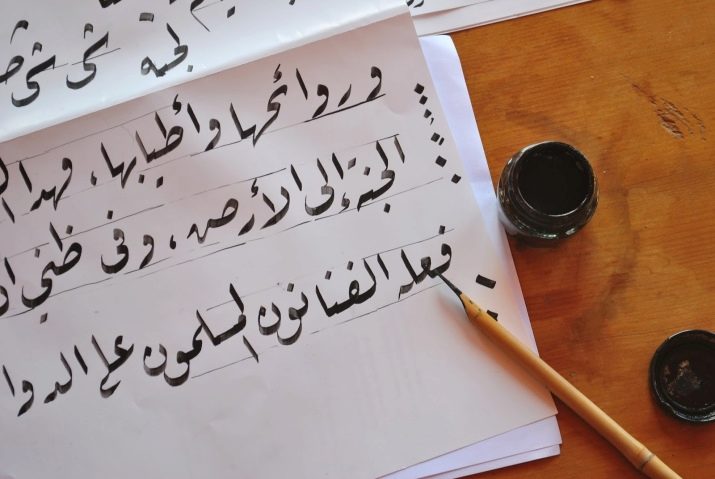 لجنة شئ شئ
وروائحها وأطيابها، فهذا
الجنة إلى الأرض، وفى ظني
فعله الفنانون المسلمون على الدوا